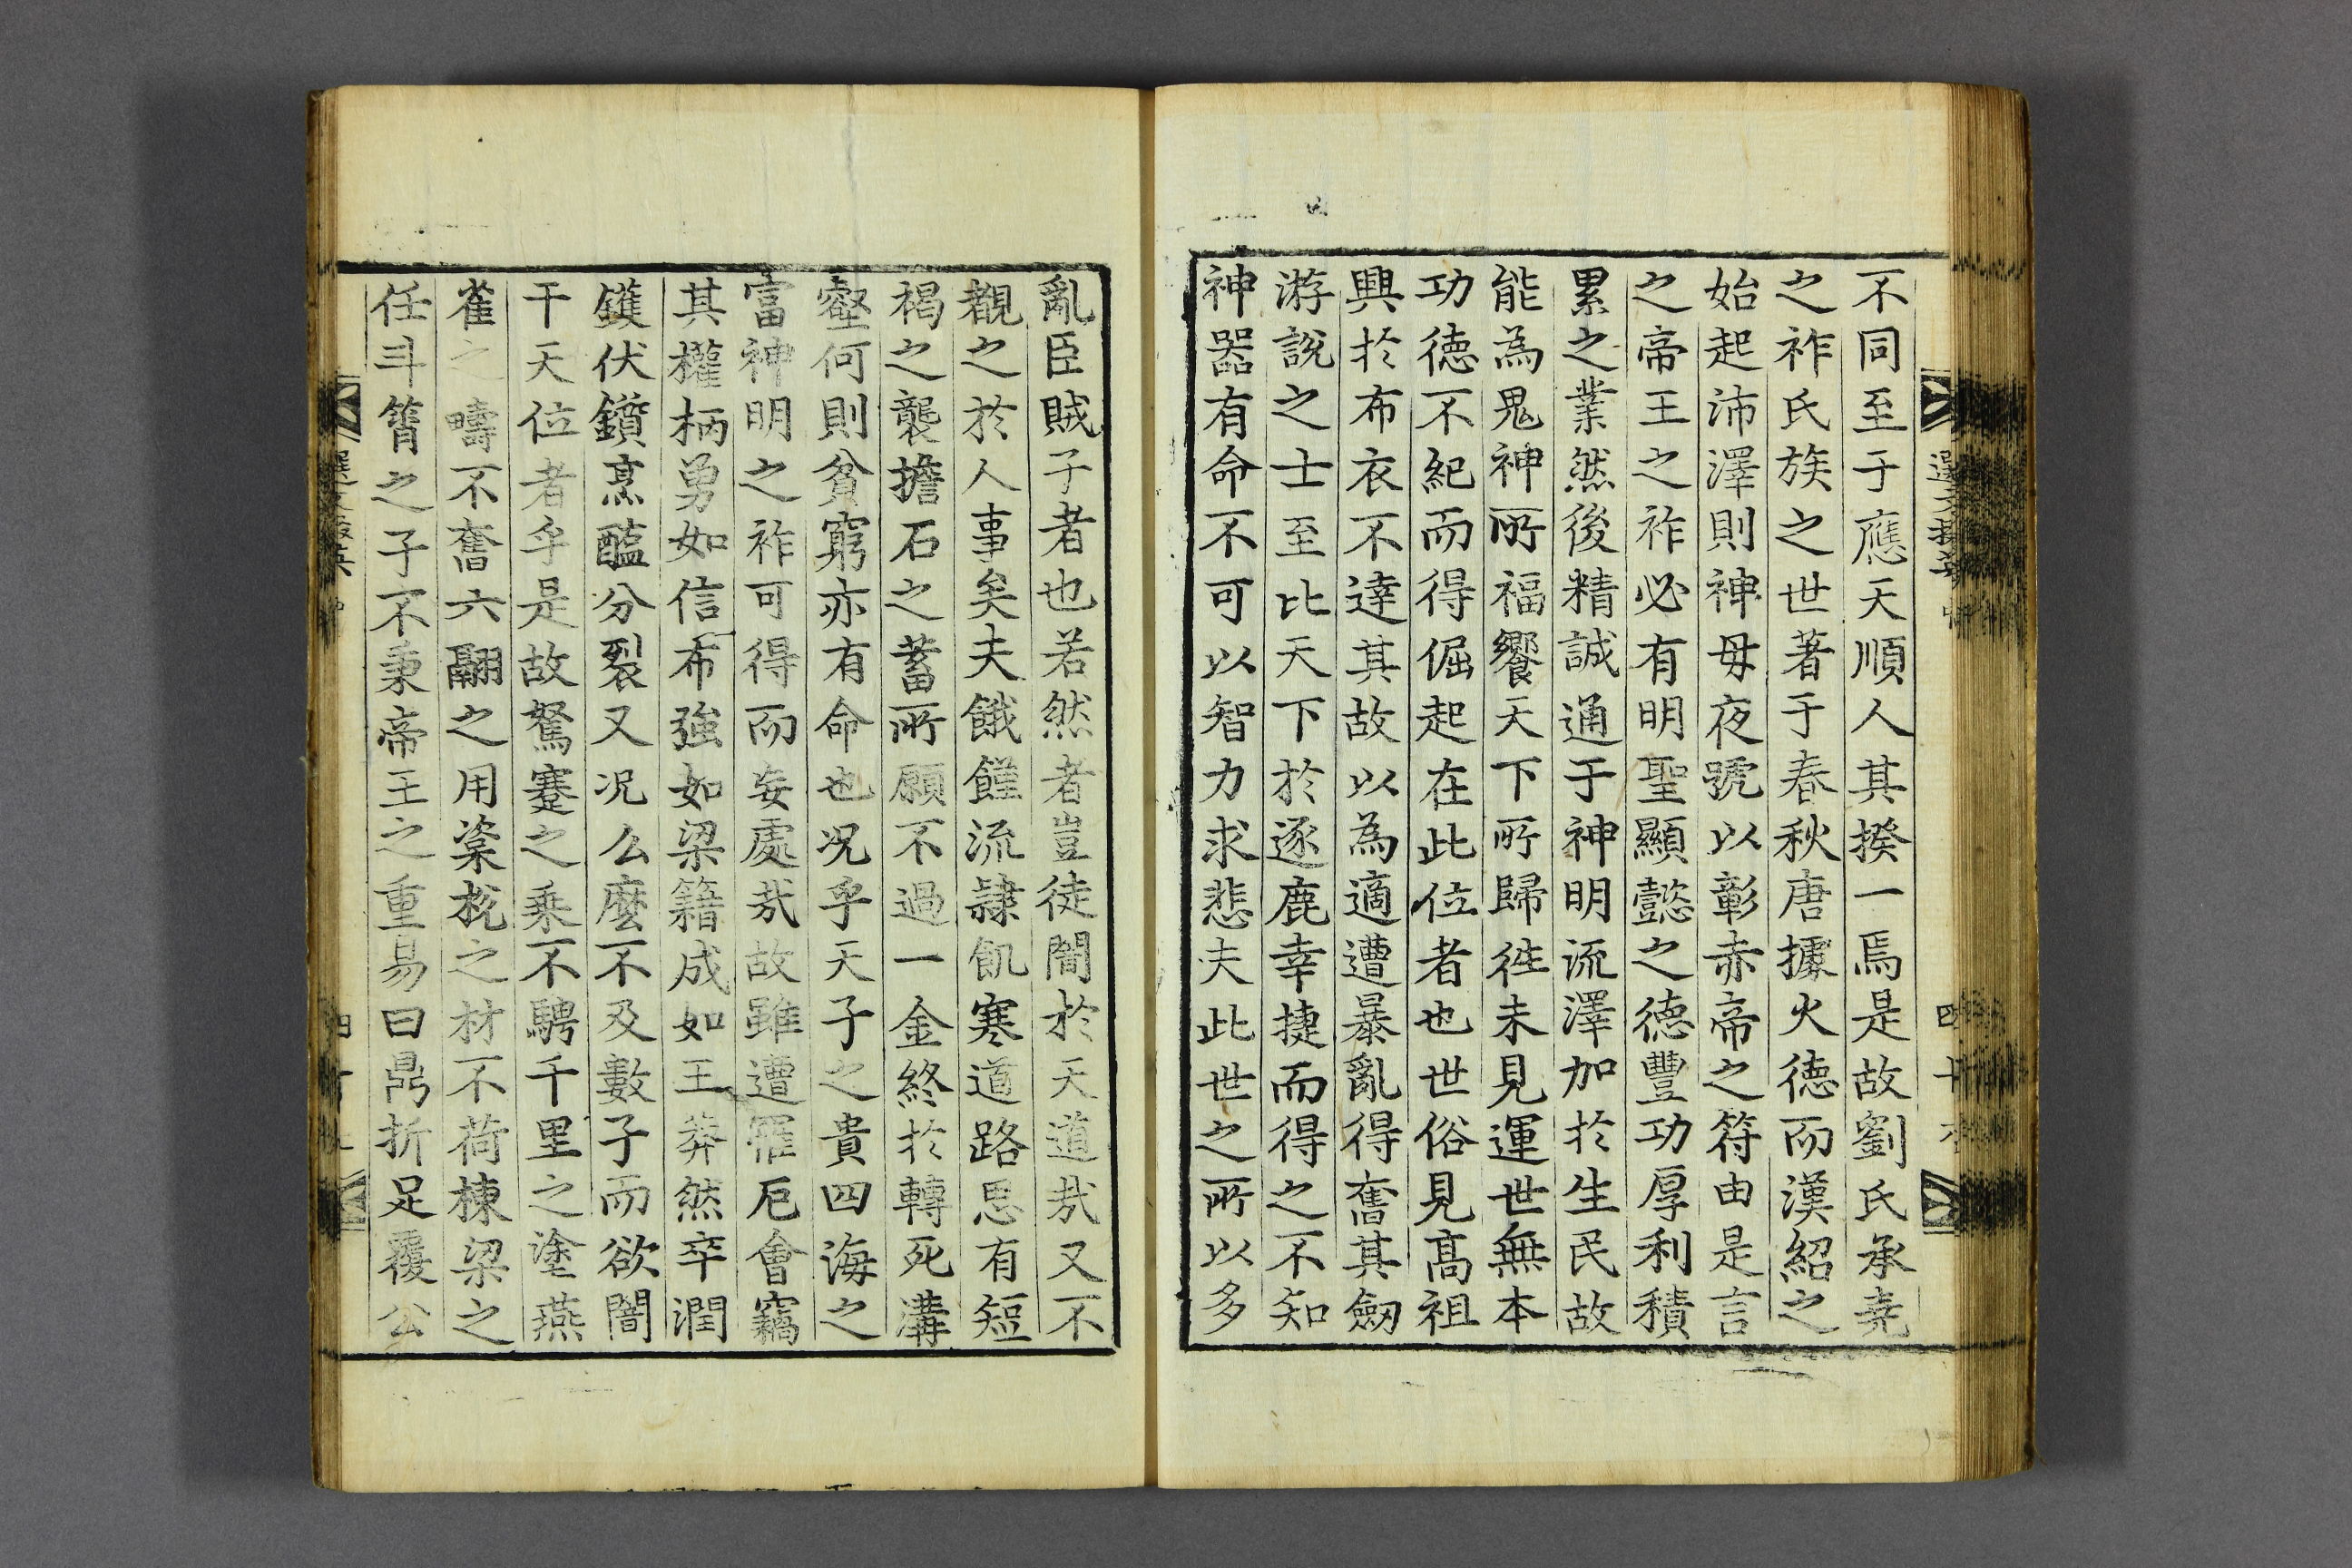 不同至于應天順人其揆一焉是故劉氏承堯
之祚氏族之世著于春秋唐據火德而漢紹之
始起沛澤則神母夜號以彰赤帝之符由是言
之帝王之祚必有明聖顯懿之德豐功厚利積
累之業然後精誠通于神明流澤加於生民故
能為鬼神所福饗天下所歸徃未見運世無本
功德不紀而得倔起在此位者也世俗見高祖
興於布衣不達其故以為適遭暴亂得奮其劒
游說之士至比天下於逐鹿幸捷而得之不知
神器有命不可以智力求悲夫此世之所以多
亂臣賊子者也若然者豈徒闇於天道㢤又不
覩之於人事矣夫餓饉流隷飢寒道路思有短
褐之襲擔石之蓄所願不過一金終於轉死溝
壑何則貧窮亦有命也况乎天子之貴四海之
富神明之祚可得而妄處㢤故雖遭罹厄會竊
其權柄勇如信布強如梁籍成如王莽然卒潤
鑊伏鑕烹醢分裂又况么麽不及數子而欲闇
干天位者乎是故駑蹇之乘不騁千里之塗燕
雀之疇不奮六翮之用楶梲之材不荷棟梁之
任斗筲之子不秉帝王之重易曰鼎折足覆公